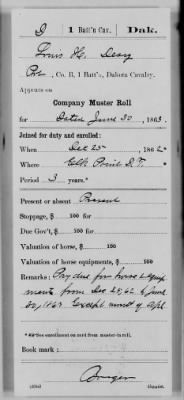 D | 1 Batt'n Cav. | Dak.
Louis H. Deary
Pvt., Co. B, 1 Batt'n, Dakota Cavalry.
Appears on
Company Muster Roll
for Dated June 30, 1863.
Joined for duty and enrolled:
When Dec 25, 1862
Where Elk Point D.T.
Period 3 years.*
Present or absent Present
Stoppage, $ 100 for
Due Gov't, $ 100 for
Valuation of horse, $ 100
Valuation of horse equipments, $ 100
Remarks: Pay due for horse & equip
ments from Dec 25, 62 to June
30, 1863 Except month of Apl.
* See enrollment on card from muster-in roll.
Book mark:
Copyist.